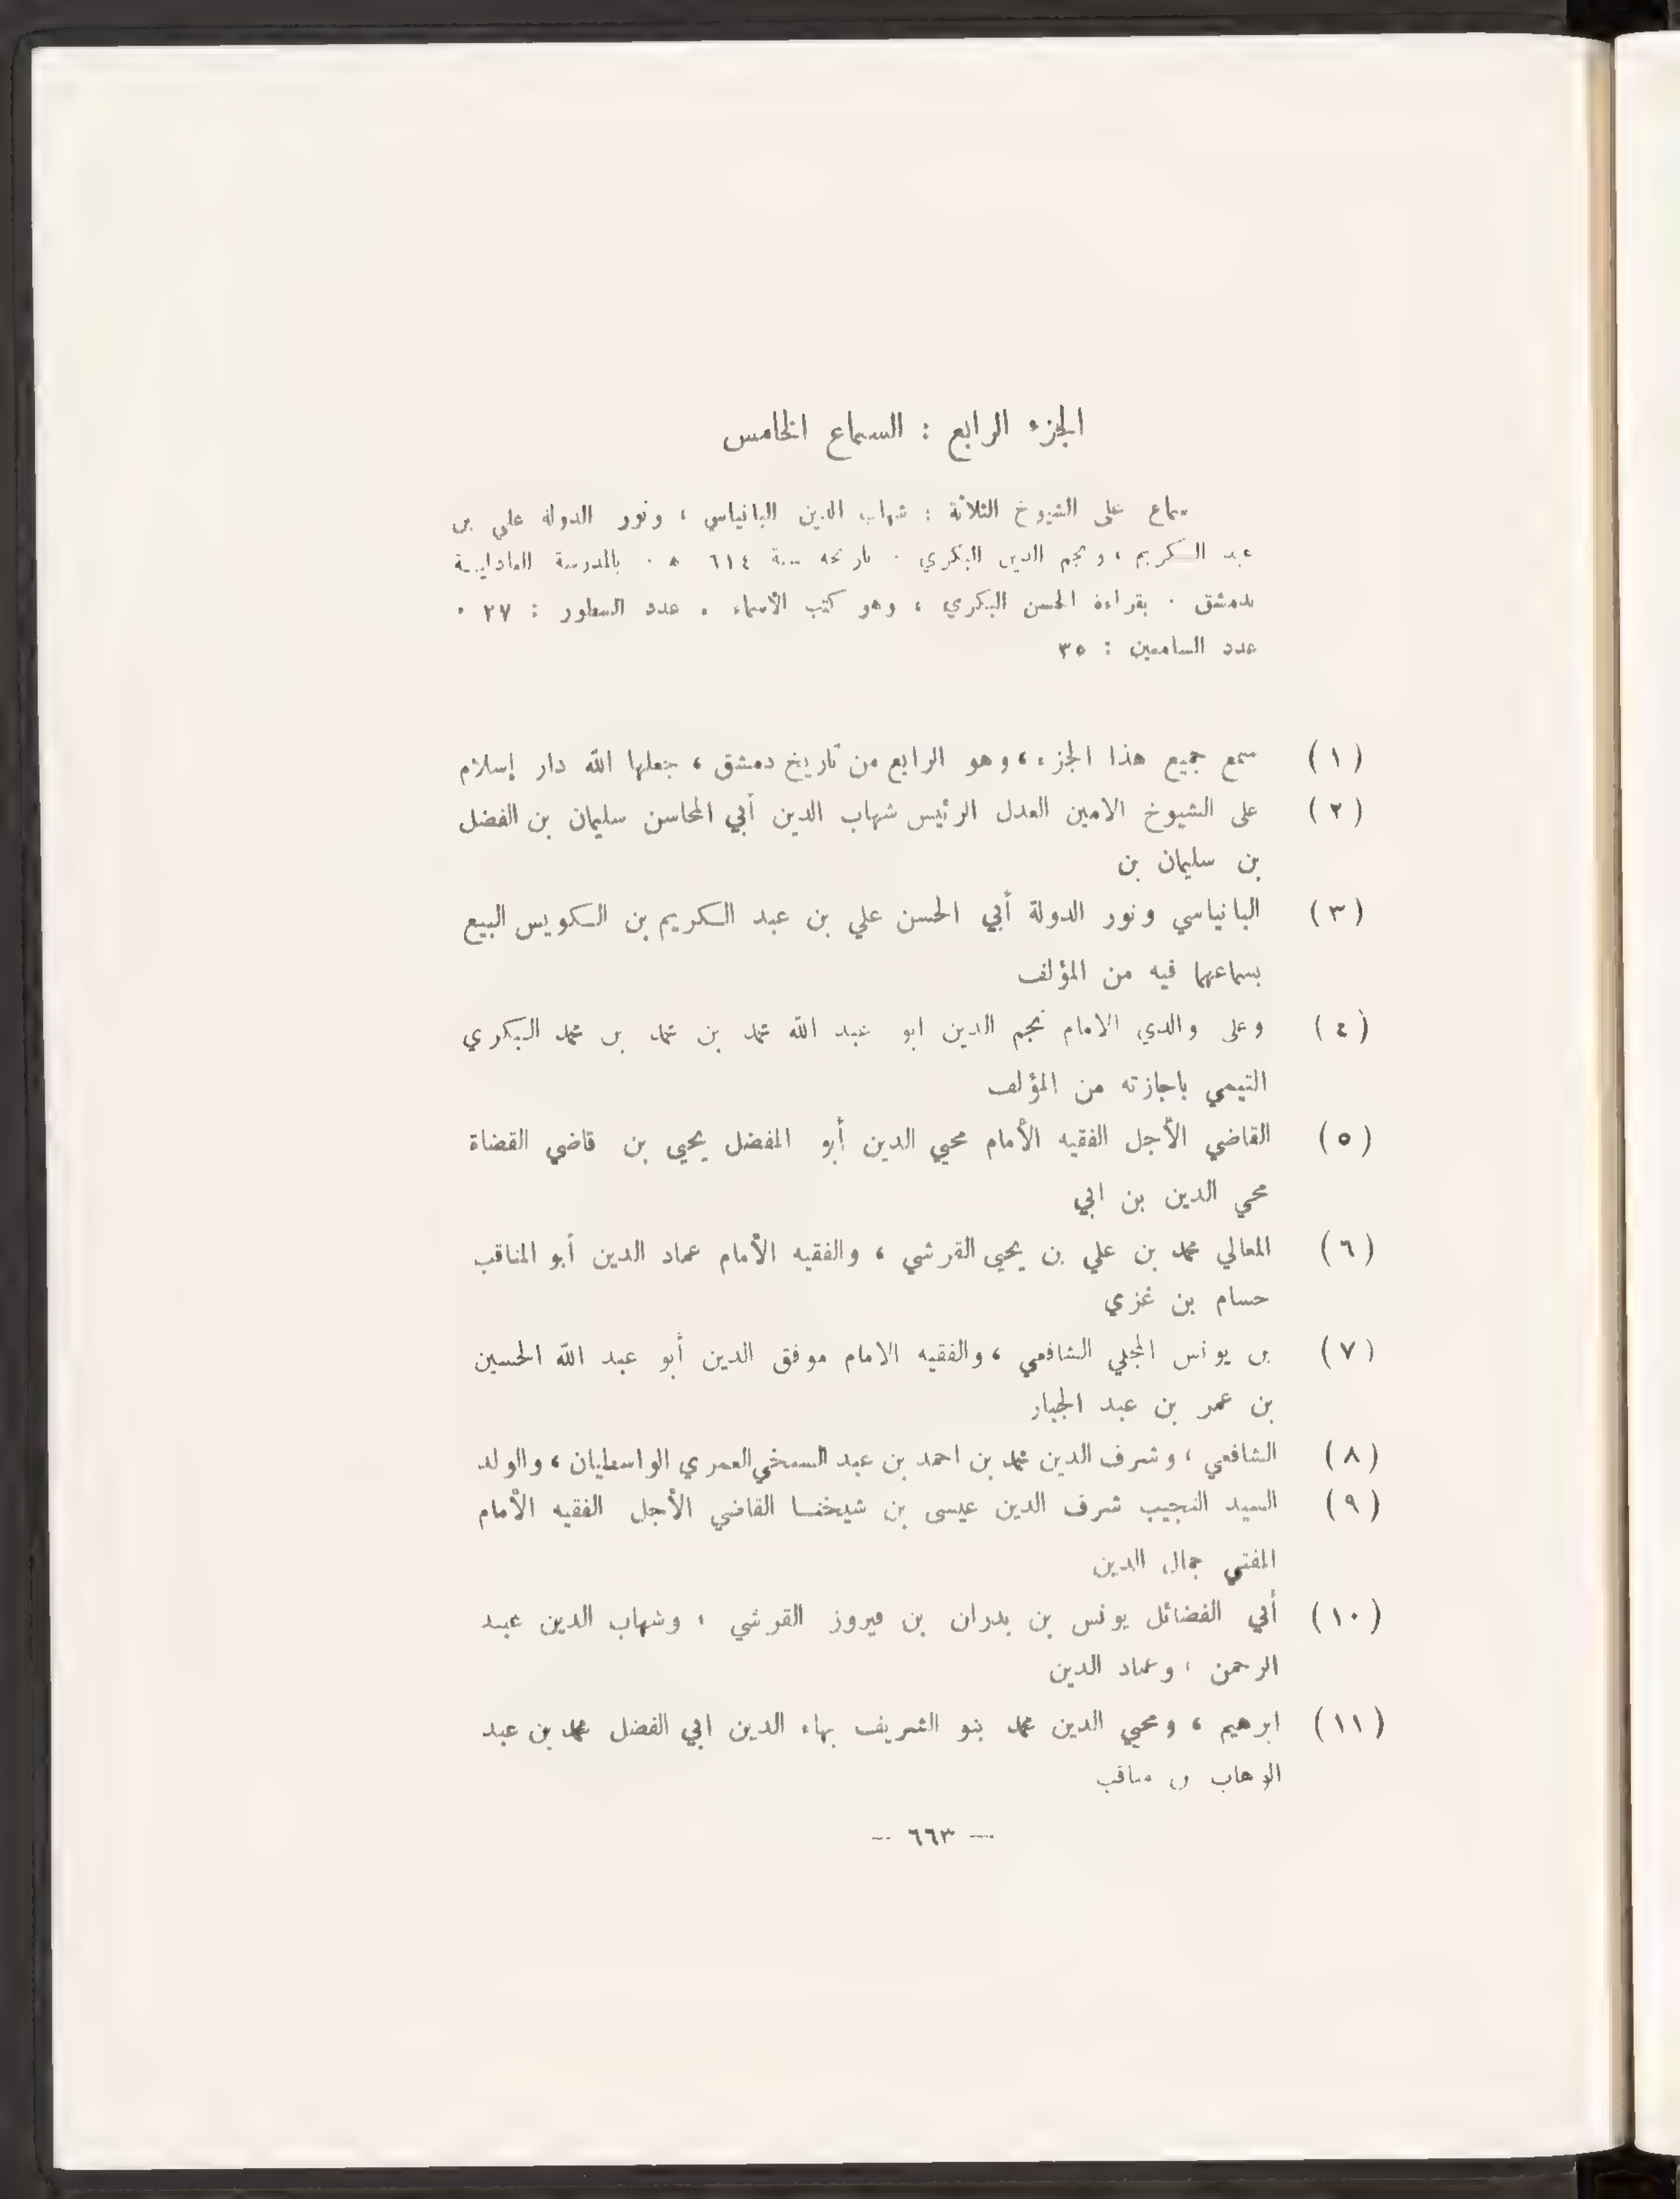 الجزء الرابع : السماع الخامس
سماع على الشيوخ الثلاثة : شهاب الدين البانياسي ، ونور الدولة علي بن
عبد الكريم ، ونجم الدين البكري . تاريخه سنة ٦١٤ ه . بالمدرسة العادلية
بدمشق . بقراءة الحسن البكري ، وهو كتب الأسماء . عدد السطور : ٢٧ .
عدد السامعين : ٣٥
(١) سمع جميع هذا الجزء ، وهو الرابع من تاريخ دمشق ، جعلها الله دار إسلام
(٢) على الشيوخ الامين العدل الرئيس شهاب الدين أبي المحاسن سليمان بن الفضل
بن سليمان بن
(٣) البانياسي ونور الدولة أبي الحسن علي بن عبد الكريم بن الكويس البيع
بسماعهما فيه من المؤلف
(٤) وعلى والدي الامام نجم الدين ابو عبد الله محمد بن محمد بن محمد البكري
التيمي باجازته من المؤلف
(٥) القاضي الأجل الفقيه الأمام محيي الدين أبو المفضل يحيى بن قاضي القضاة
محي الدين بن ابي
(٦) المعالي محمد بن علي بن يحيى القرشي ، والفقيه الأمام عماد الدين أبو المناقب
حسام بن غزي
(٧) بن يونس المجلي الشافعي ، والفقيه الامام موفق الدين أبو عبد الله الحسين
بن عمر بن عبد الجبار
(٨) الشافعي ، وشرف الدين محمد بن احمد بن عبد السخي العمري الواسطيان ، والولد
(٩) السيد النجيب شرف الدين عيسى بن شيخنا القاضي الأجل الفقيه الأمام
المفتي جمال الدين
(١٠) أبي الفضائل يونس بن بدران بن فيروز القرشي ، وشهاب الدين عبد
الرحمن ، وعماد الدين
(١١) ابرهيم ، ومحيي الدين محمد بنو الشريف بهاء الدين ابي الفضل محمد بن عبد
الوهاب بن مناقب
— ٦٦٣ —